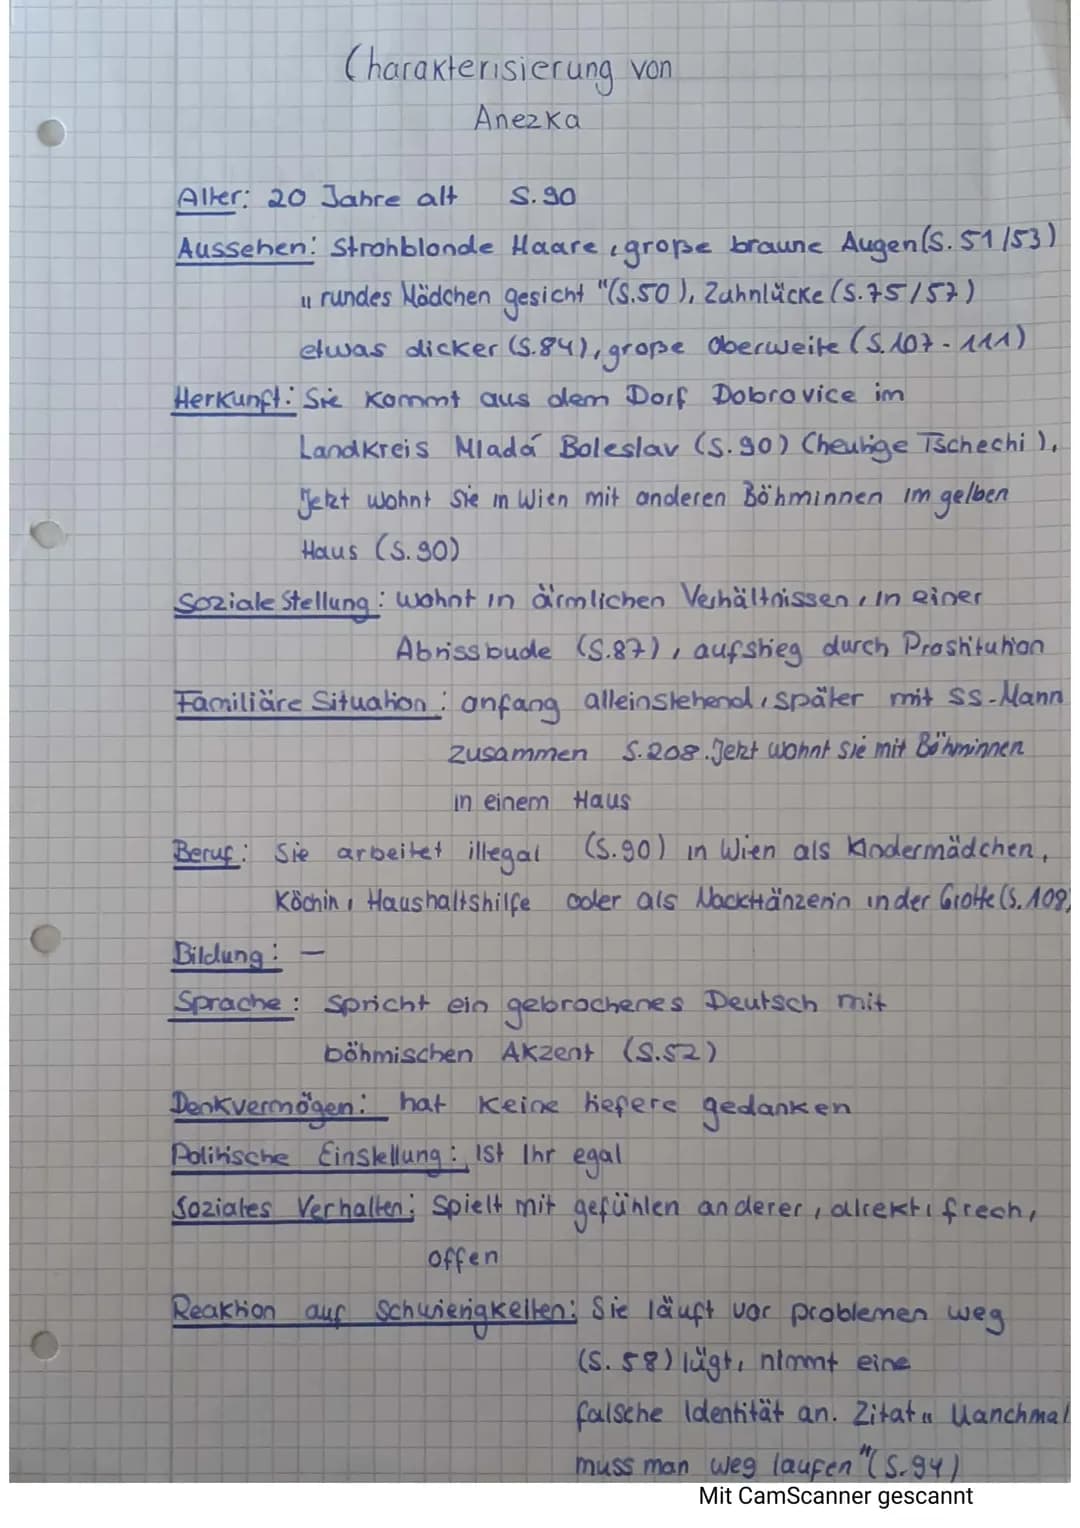 Charakterisierung von
Anezka
Alter: 20 Jahre alt S. 90
Aussehen: Strohblonde Haare, große braune Augen (S. 51/53)
„rundes Mädchen gesicht" (S.50), Zahnlücke (S.75/57)
etwas dicker (S.84), große Oberweite (S.107-111)
Herkunft: Sie kommt aus dem Dorf Dobrovice im
Landkreis Mladá Boleslav (S.90) (heutige Tschechi).
Jetzt wohnt sie in Wien mit anderen Böhminnen im gelben
Haus (S.90)
Soziale Stellung: wohnt in ärmlichen Verhältnissen, in einer
Abrissbude (S.87), aufstieg durch Prostitution
Familiäre Situation: anfang alleinstehend, später mit SS-Mann
zusammen S.208. Jetzt wohnt sie mit Böhminnen
in einem Haus
Beruf: Sie arbeitet illegal (S.90) in Wien als Kindermädchen,
Köchin, Haushaltshilfe oder als Nackttänzerin in der Grotte (S.109)
Bildung: —
Sprache: spricht ein gebrochenes Deutsch mit
böhmischen Akzent (S.52)
Denkvermögen: hat keine tiefere gedanken
Politische Einstellung: Ist Ihr egal
Soziales Verhalten: Spielt mit gefühlen anderer, direkt, frech,
offen
Reaktion auf Schwierigkeiten: Sie läuft vor problemen weg
(S. 58) lügt, nimmt eine
falsche Identität an. Zitat „Manchmal
muss man weg laufen" (S.94)
Mit CamScanner gescannt